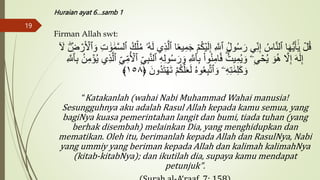 Huraian ayat 6...samb 1
19
Firman Allah swt:
قُلْ يَٰٓأَيُّهَا ٱلنَّاسُ إِنِّي رَسُولُ ٱللَّهِ إِلَيْكُمْ جَمِيعًا ٱلَّذِي لَهُۥ مُلْكُ ٱلسَّمَٰوَٰتِ وَٱلْأَرْضِۖ لَآ
إِلَٰهَ إِلَّا هُوَ يُحْيِۦ وَيُمِيتُۖ فَـَٔامِنُوا۟ بِٱللَّهِ وَرَسُولِهِ ٱلنَّبِيِّ ٱلْأُمِّيِّ ٱلَّذِي يُؤْمِنُ بِٱللَّهِ
وَكَلِمَٰتِهِۦ وَٱتَّبِعُوهُ لَعَلَّكُمْ تَهْتَدُونَ ﴿١٥٨﴾
"Katakanlah (wahai Nabi Muhammad Wahai manusia!
Sesungguhnya aku adalah Rasul Allah kepada kamu semua, yang
bagiNya kuasa pemerintahan langit dan bumi, tiada tuhan (yang
berhak disembah) melainkan Dia, yang menghidupkan dan
mematikan. Oleh itu, berimanlah kepada Allah dan RasulNya, Nabi
yang ummiy yang beriman kepada Allah dan kalimah kalimahNya
(kitab-kitabNya); dan ikutilah dia, supaya kamu mendapat
petunjuk".
(Surah al-A'raaf, 7: 158)